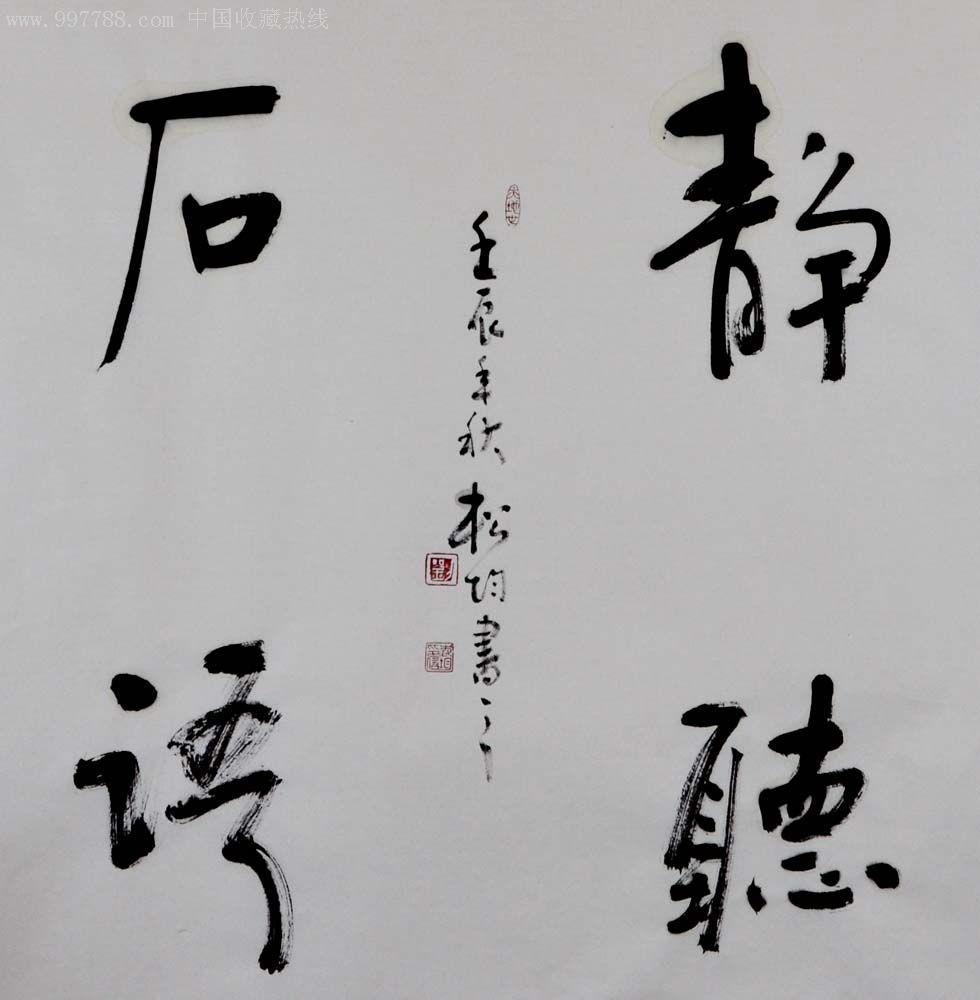 www.997788.com 中国收藏热线
静聽
石语
壬辰年秋松均書